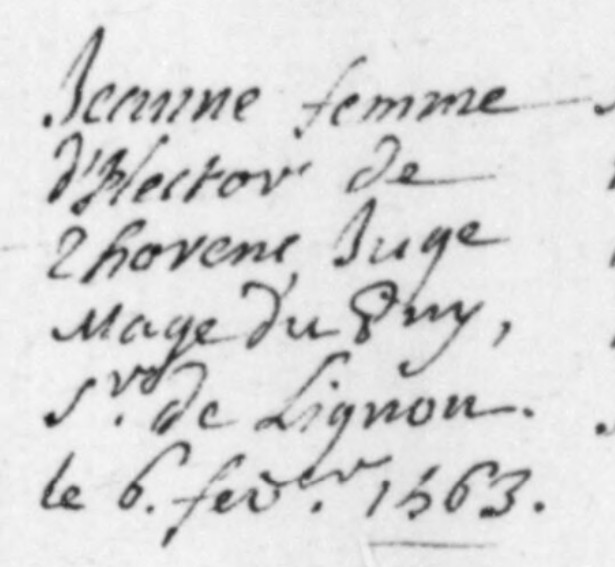 Jeanne femme
d'Hector de
Thorene Juge
Mage du Puy,
Sr. de Lignon.
le 6. fevr. 1563.